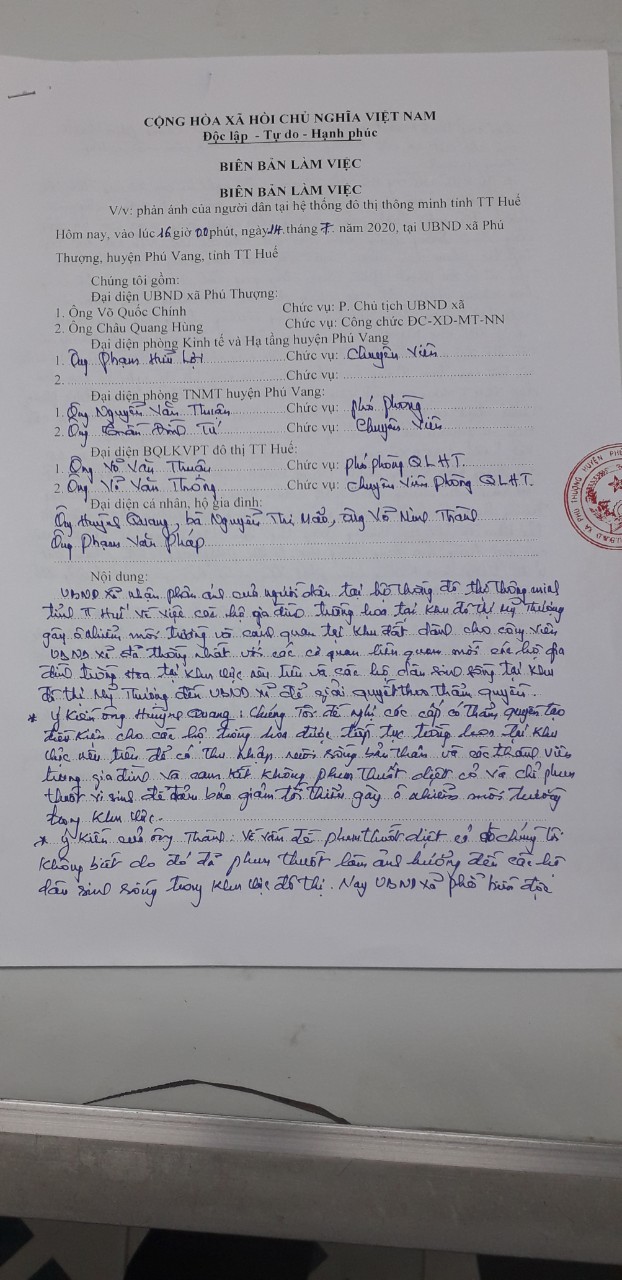 CỘNG HÒA XÃ HỘI CHỦ NGHĨA VIỆT NAM
Độc lập - Tự do - Hạnh phúc
BIÊN BẢN LÀM VIỆC
BIÊN BẢN LÀM VIỆC
V/v: phản ánh của người dân tại hệ thống đô thị thông minh tỉnh TT Huế
Hôm nay, vào lúc 16 giờ 00 phút, ngày 14 tháng 7 năm 2020, tại UBND xã Phú
Thượng, huyện Phú Vang, tỉnh TT Huế
Chúng tôi gồm:
Đại diện UBND xã Phú Thượng:
1. Ông Võ Quốc Chính Chức vụ: P. Chủ tịch UBND xã
2. Ông Châu Quang Hùng Chức vụ: Công chức ĐC-XD-MT-NN
Đại diện phòng Kinh tế và Hạ tầng huyện Phú Vang
1. Ông Phạm Hữu Lợi Chức vụ: Chuyên Viên
2. Chức vụ:
Đại diện phòng TNMT huyện Phú Vang:
1. Ông Nguyễn Văn Thuân Chức vụ: phó phòng
2. Ông Đình Tú Chức vụ: Chuyên Viên
Đại diện BQLKVPT đô thị TT Huế:
1. Ông Võ Văn Thuận Chức vụ: phó phòng QLHT.
2. Ông Võ Văn Thông Chức vụ: Chuyên viên phòng QLHT.
Đại diện cá nhân, hộ gia đình:
Ông Huỳnh Quang, bà Nguyễn Thị Mão, ông Võ Minh Thành
Ông Phạm Văn Pháp
Nội dung:
UBND xã nhận phản ánh của người dân tại hệ thống đô thị thông minh
tỉnh TT Huế về việc các hộ gia đình trồng hoa tại khu đô thị Mỹ Thượng
gây ô nhiễm môi trường và cảnh quan tại khu đất dành cho công viên
UBND xã đã thống nhất với các cơ quan liên quan mời các hộ gia
đình trồng hoa tại khu vực nêu trên và các hộ dân sinh sống tại khu
đô thị Mỹ Thượng đến UBND xã để giải quyết theo thẩm quyền.
* Ý kiến ông Huỳnh Quang: Chúng Tôi đề nghị các cấp có thẩm quyền tạo
điều kiện cho các hộ trồng hoa được tiếp tục trồng hoa tại khu
vực nêu trên để có thu nhập nuôi sống bản thân và các thành viên
trong gia đình và cam kết không phun thuốt diệt cỏ và chỉ phun
thuốt vi sinh để đảm bảo giảm tối thiểu gây ô nhiễm môi trường
trong khu vực.
* Ý kiến của ông Thành: Về vấn đề phun thuốt diệt cỏ do chúng tôi
không biết do đó đã phun thuốt làm ảnh hưởng đến các hộ
dân sinh sống trong khu vực đô thị. Nay UBND xã phổ biến được